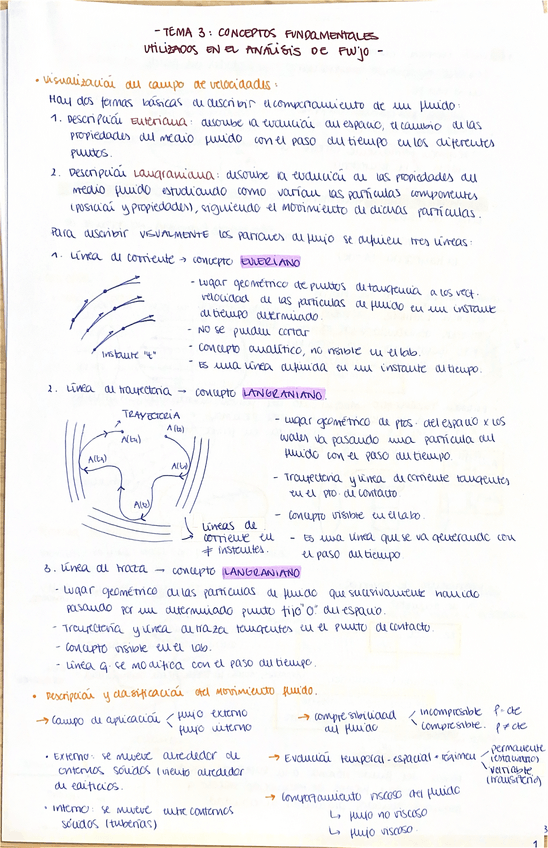 - TEMA 3: CONCEPTOS FUNDAMENTALES
UTILIZADOS EN EL ANÁLISIS DE FLUJO -
• Visualización del campo de velocidades:
Hay dos formas básicas de describir el comportamiento de un fluido:
1. Descripción Euleriana: describe la evolución del espacio, el cambio de las
propiedades del medio fluido con el paso del tiempo en los diferentes
puntos.
2. Descripción Langraniana: describe la evolución de las propiedades del
medio fluido estudiando como varían las partículas componentes
(posición y propiedades), siguiendo el movimiento de dichas partículas.
Para describir VISUALMENTE los patrones de flujo se definen tres líneas:
1. Línea de corriente → concepto EULERIANO
- Lugar geométrico de puntos de tangencia a los vect.
velocidad de las partículas de fluido en un instante
de tiempo determinado.
- No se pueden cortar
- Concepto analítico, no visible en el lab.
- Es una línea definida en un instante de tiempo.
Instante "t"
2. Línea de trayectoria → concepto LANGRANIANO
TRAYECTORIA
A(t1)
A(t)
A(t2)
- Lugar geométrico de ptos. del espacio x los
cuales va pasando una partícula del
fluido con el paso del tiempo.
- Trayectoria y línea de corriente tangentes
en el pto. de contacto
- Concepto visible en el labo.
- Es una línea que se va generando con
el paso del tiempo
Líneas de
corriente en
≠ instantes.
3. Línea de traza → concepto LANGRANIANO
- Lugar geométrico de las partículas de fluido que sucesivamente han ido
pasando por un determinado punto fijo "O" del espacio.
- Trayectoria y línea de traza tangentes en el punto de contacto.
- Concepto visible en el lab.
- Línea q. se modifica con el paso del tiempo.
• Descripción y clasificación del movimiento fluido.
→ Campo de aplicación < flujo externo
flujo interno
• Externo: se mueve alrededor de
contornos sólidos (viento alrededor
de edificios.
• Interno: se mueve entre contornos
sólidos (tuberías)
→ Compresibilidad < incompresible ρ=cte
del fluido compresible. ρ≠cte
→ Evolución temporal-espacial • régimen < permanente
(estacionario)
variable
(transitorio)
→ Comportamiento viscoso del fluido
↳ flujo no viscoso
↳ flujo viscoso.
1